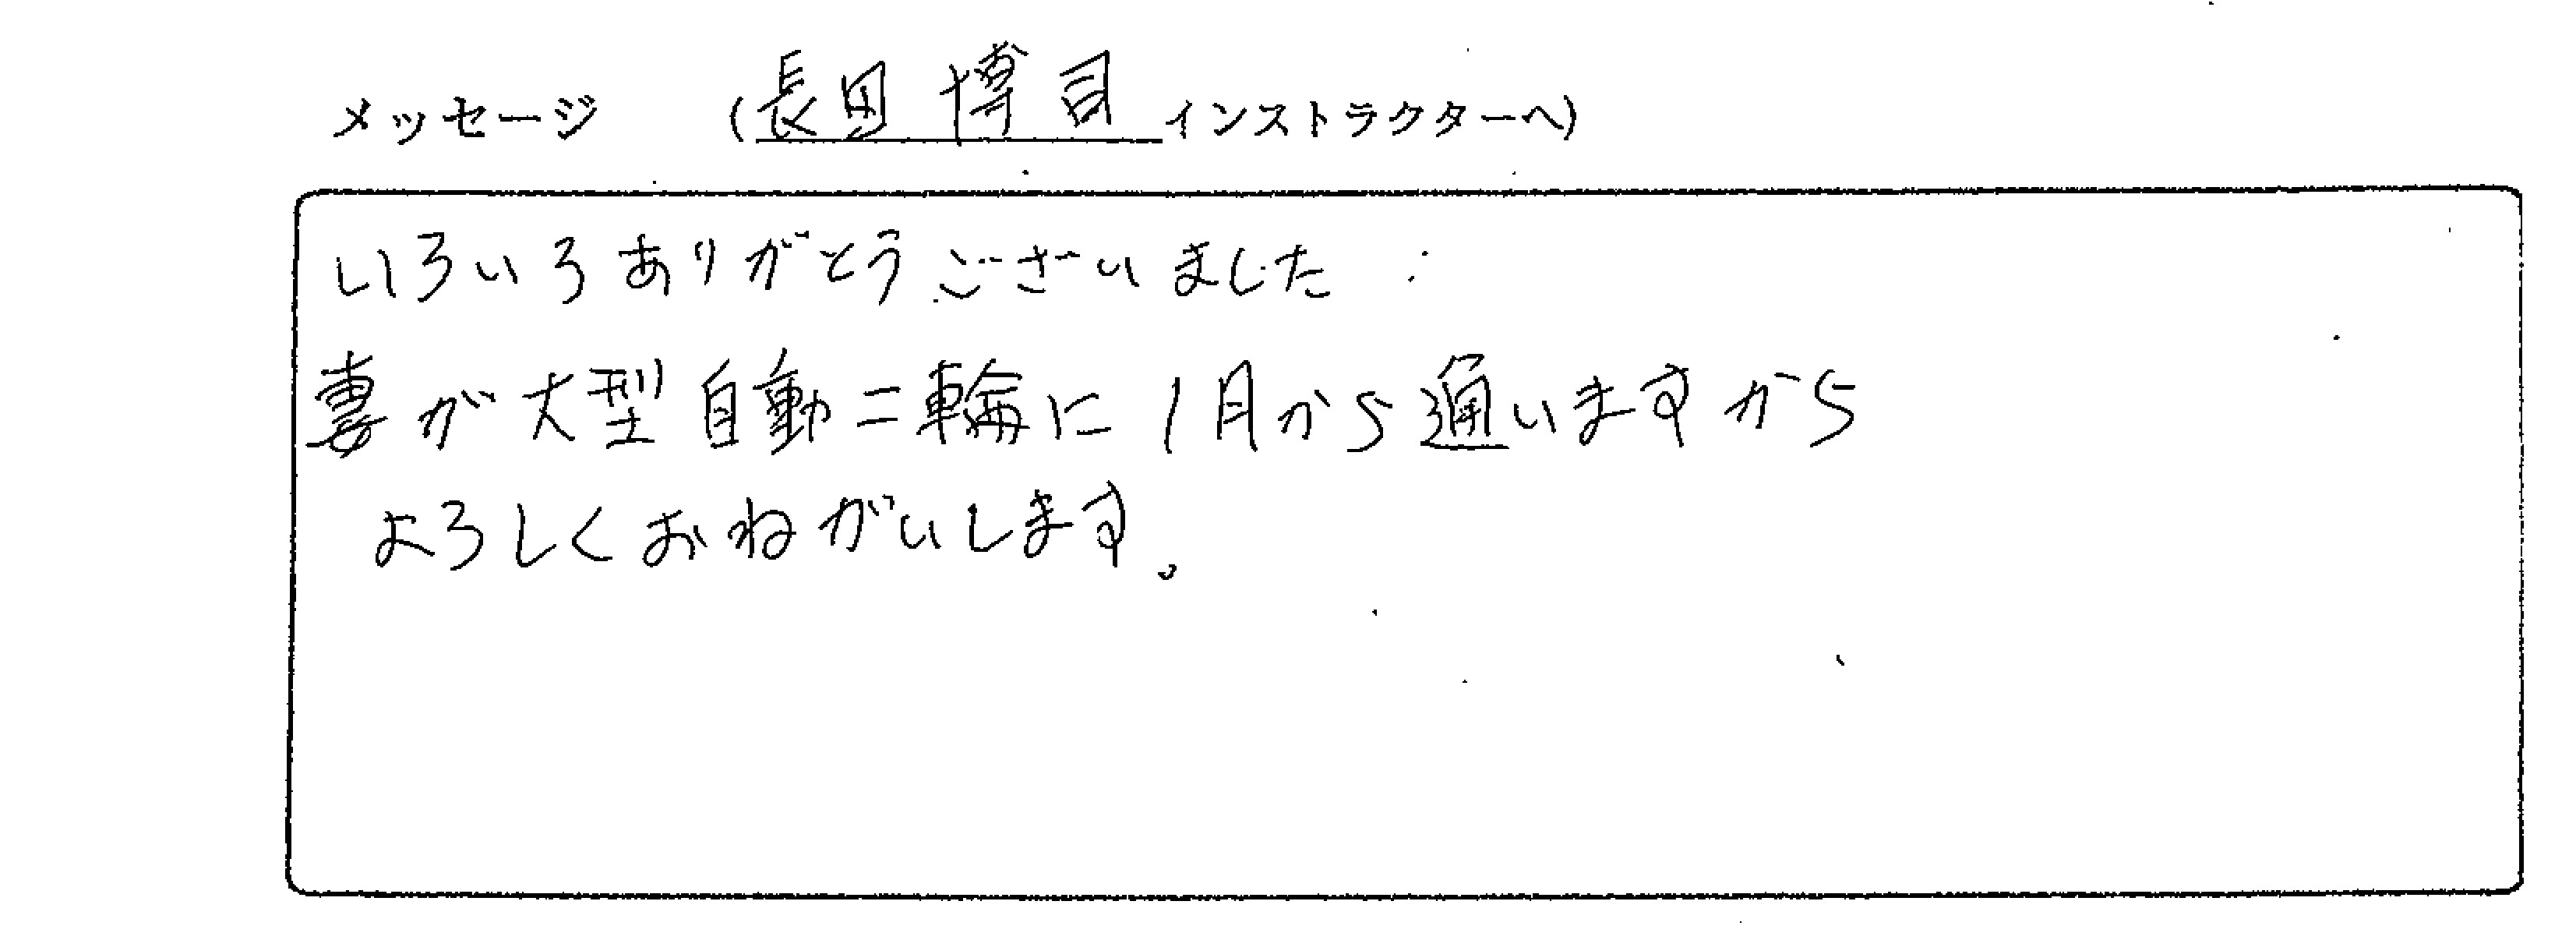 メッセージ (長田 博司 インストラクターへ)
いろいろありがとうございました
妻が大型自動二輪に1月から通いますから
よろしくおねがいします。